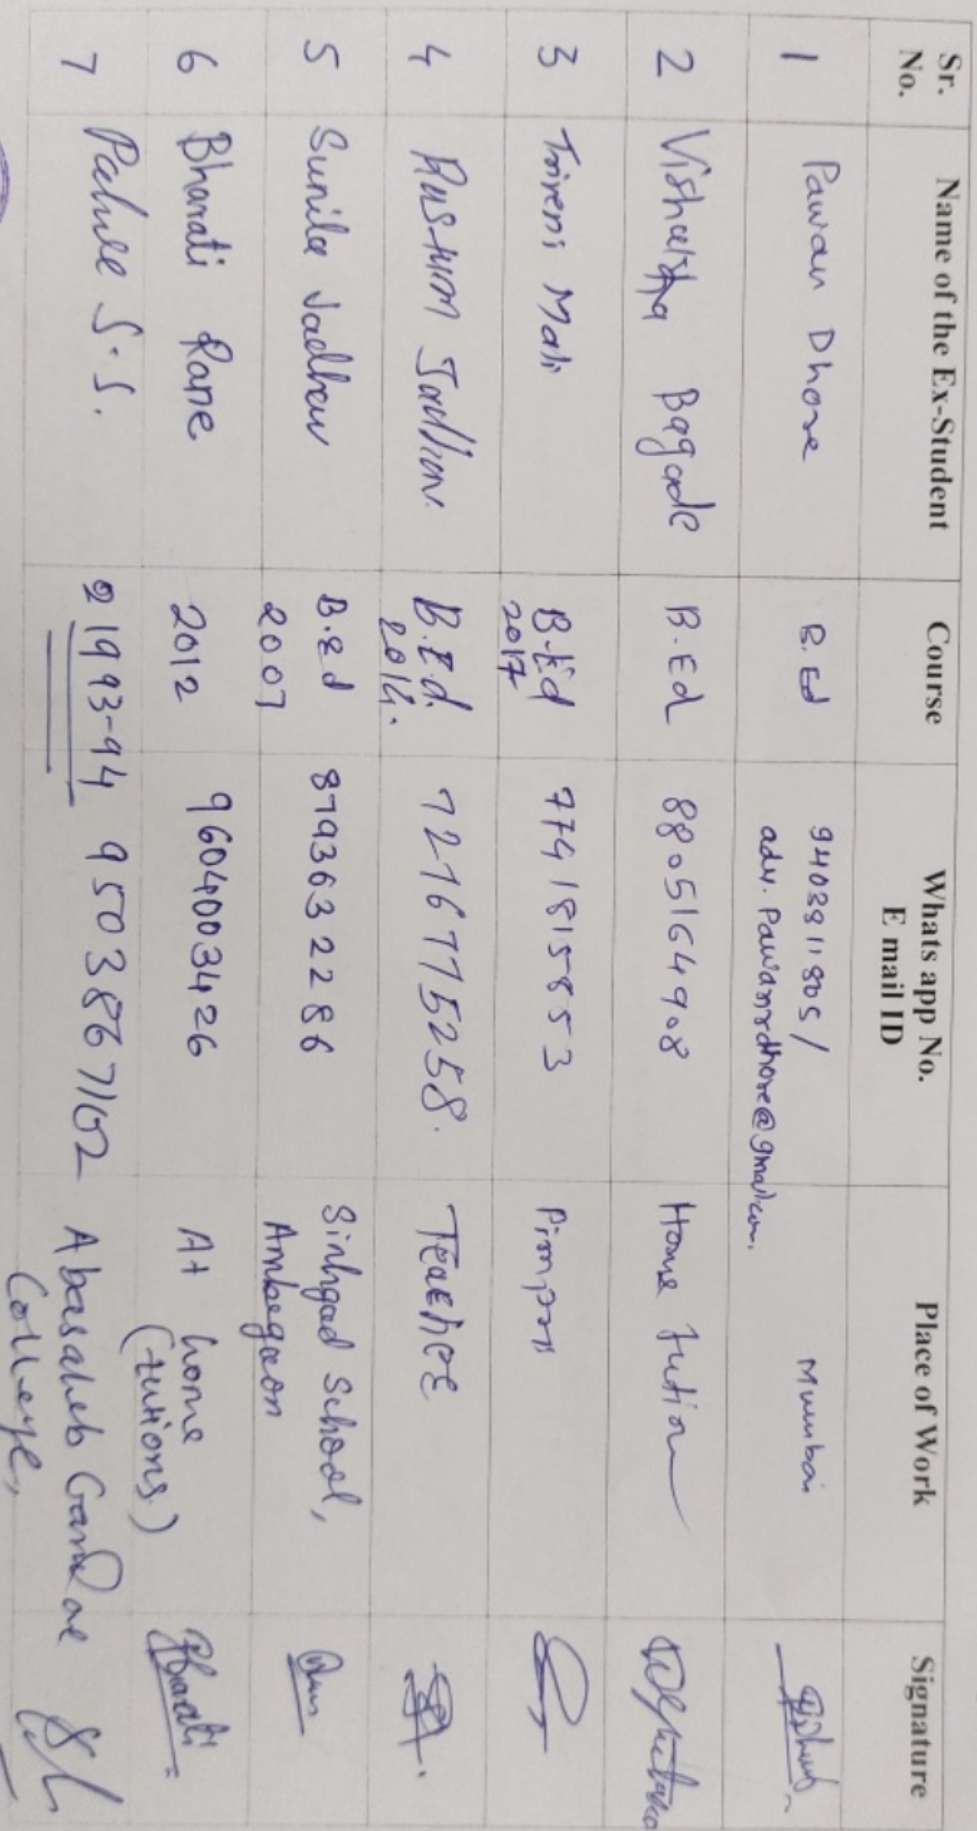 Sr. No. Name of the Ex-Student Course Whats app No. E mail ID Place of Work Signature
1 Pawan Dhore B.Ed 9403811805 / adv.pawanrdhore@gmail.com. Mumbai
2 Vishakha Bagade B.Ed 8805164908 Home tution
3 Triveni Mali B.Ed 2017 7741815853
4 Rustum Jadhav. B.Ed. 2014. 7276775258. Teacher
5 Sunila Jadhav B.Ed 2007 8793632286 Sinhgad School, Ambegaon
6 Bharati Rane 2012 9604003426 At home (tutions.) Bharati
7 S.S. 1993-94 9503867102 Abasaheb Garware College,